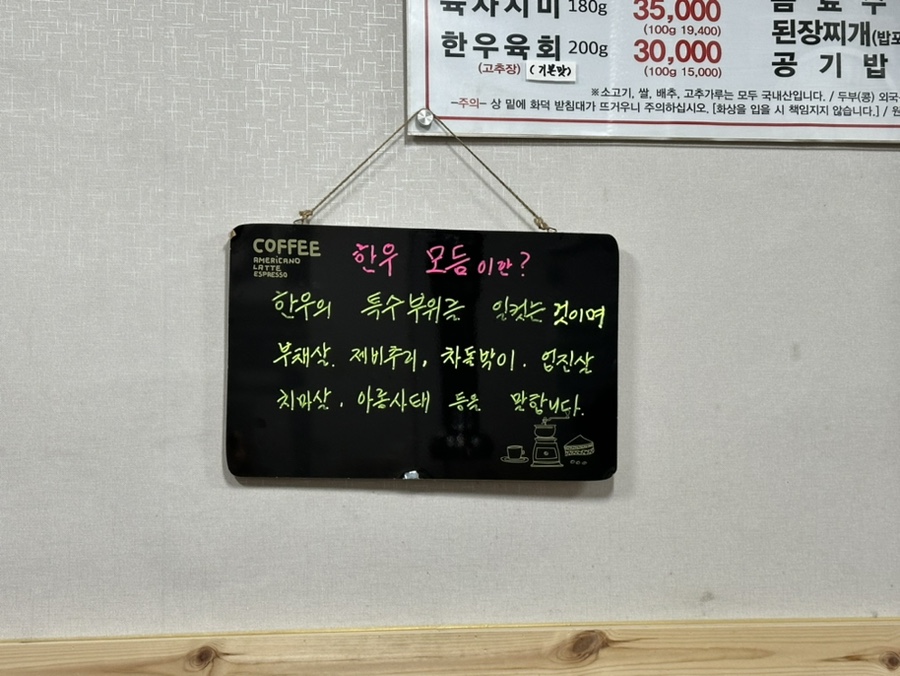 육사시미 180g 35,000
(100g 19,400)
한우육회 200g 30,000
(고추장) (기본맛) (100g 15,000)
음료수
된장찌개(밥포
공 기 밥
※소고기, 쌀, 배추, 고추가루는 모두 국내산입니다. / 두부(콩) 외국
-주의- 상 밑에 화덕 받침대가 뜨거우니 주의하십시오. [화상을 입을 시 책임지지 않습니다.] / 원
COFFEE
AMERICANO
LATTE
ESPRESSO
한우 모듬이란?
한우의 특수부위를 일컫는 것이며
부채살. 제비추리, 차돌박이. 업진살
치마살. 아롱사태 등을 말합니다.